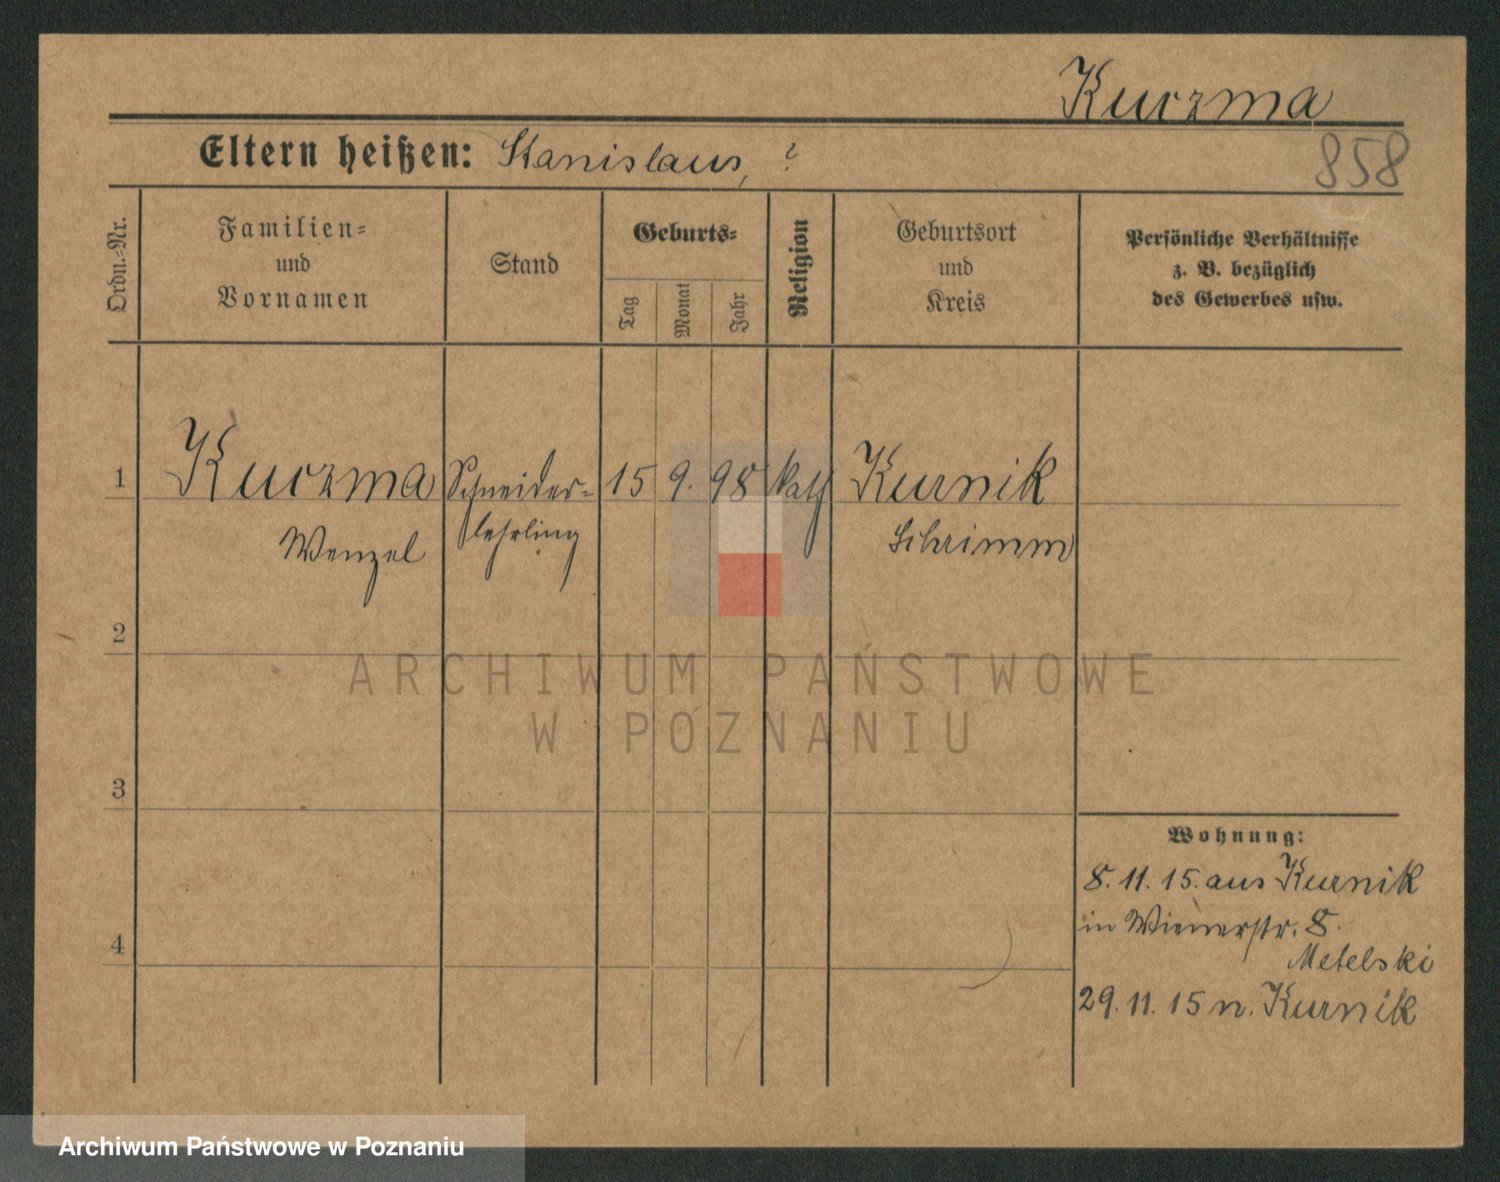 Kurzma
Eltern heißen: Stanislaus, ?
858
Ordn.-Nr.
Familien-
und
Vornamen
Stand
Geburts-
Tag
Monat
Jahr
Religion
Geburtsort
und
Kreis
Persönliche Verhältnisse
z. B. bezüglich
des Gewerbes usw.
1 Kurzma Schneider- 15 9. 98 kath Kurnik
Wenzel lehrling Schrimm
2
ARCHIWUM PAŃSTWOWE
W POZNANIU
3
Wohnung:
8. 11. 15. aus Kurnik
in Wienerstr. 8.
4
Metelski
29. 11. 15 n. Kurnik
Archiwum Państwowe w Poznaniu